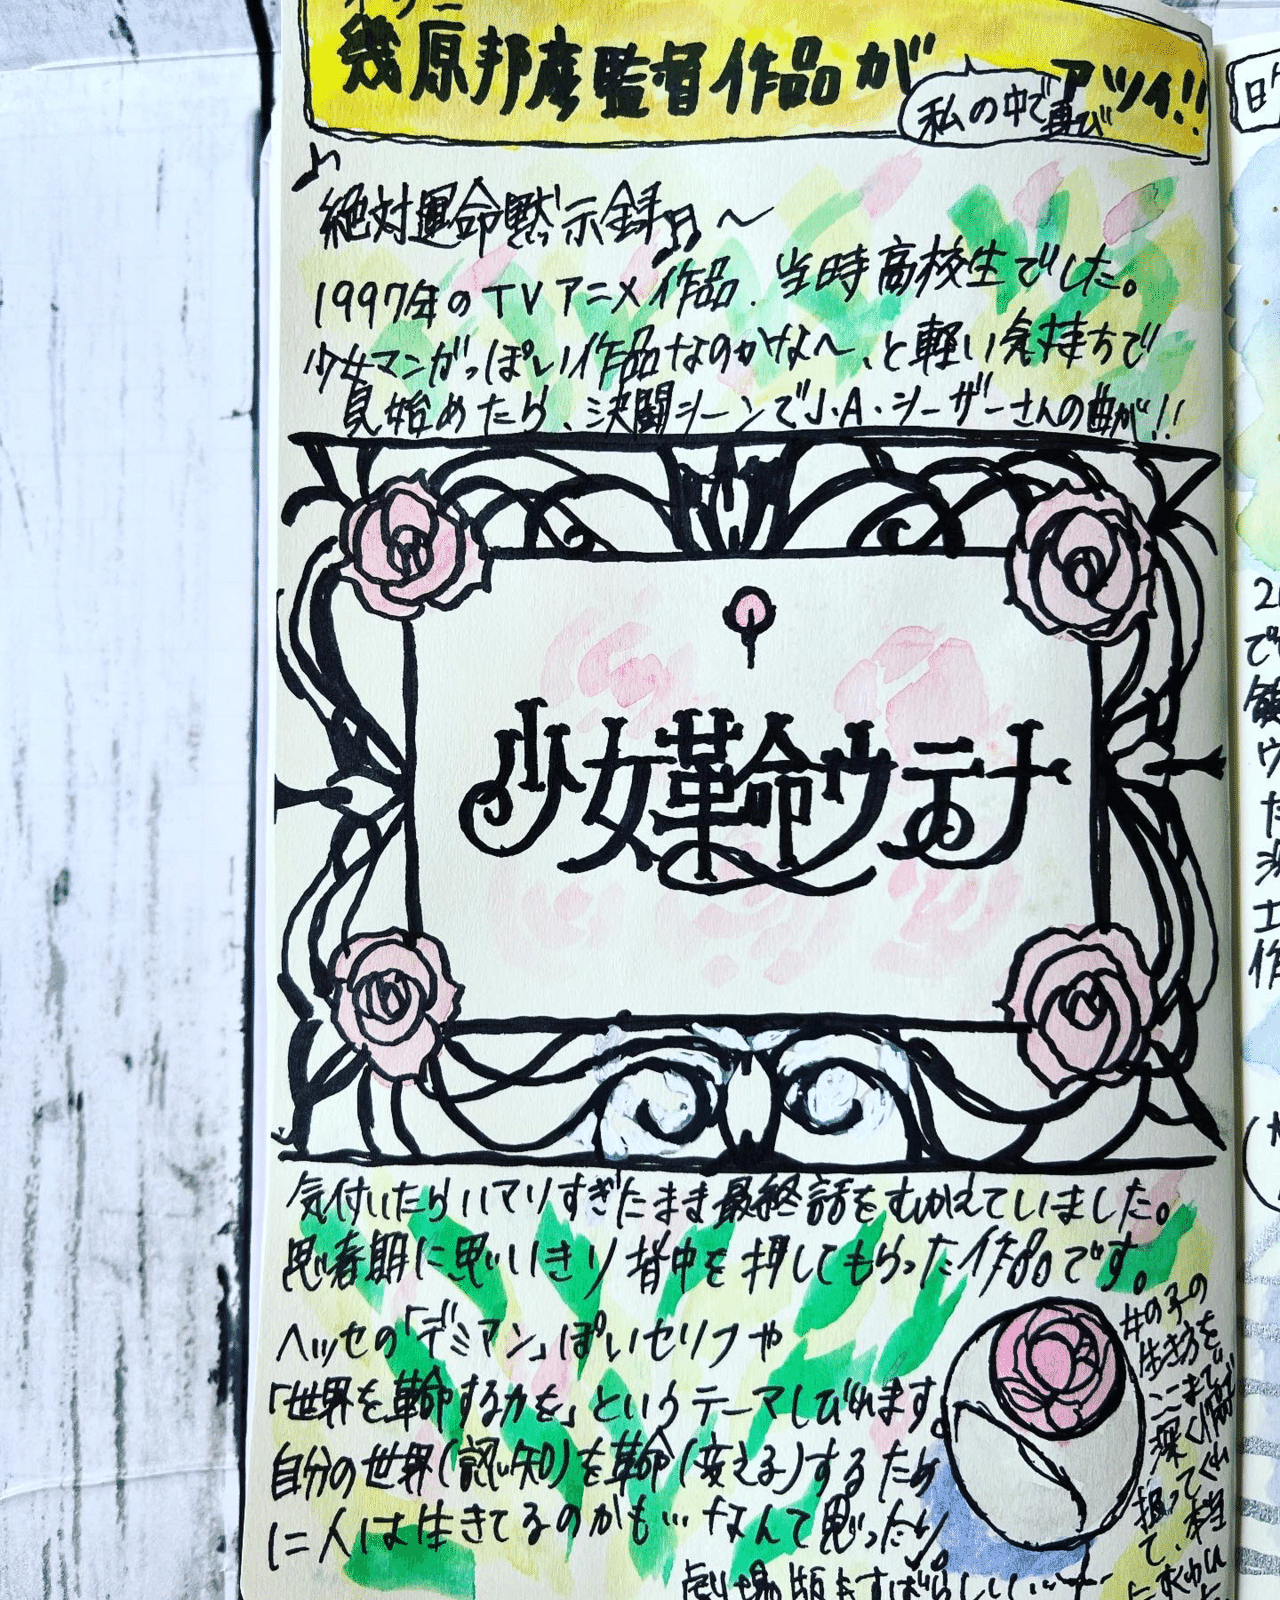 幾原邦彦監督作品が
私の中で再び
アツイ!!
♪
絶対運命黙示録♫〜
1997年のTVアニメ作品.当時高校生でした。
少女マンガっぽい作品なのかな〜、と軽い気持ちで
見始めたら、決闘シーンでJ・A・シーザーさんの曲が!!
少女革命ウテナ
気付いたらハマりすぎたまま最終話をむかえていました。
思春期に思いきり背中を押してもらった作品です。
ヘッセの「デミアン」ぽいセリフや
「世界を革命する力を」というテーマしびれます。
自分の世界(認知)を革命(変える)するため
に人は生きてるのかも…なんて思ったり。
劇場版もすばらしい……
女の子の
生き方を
ここまで
深く
扱って
て、本当